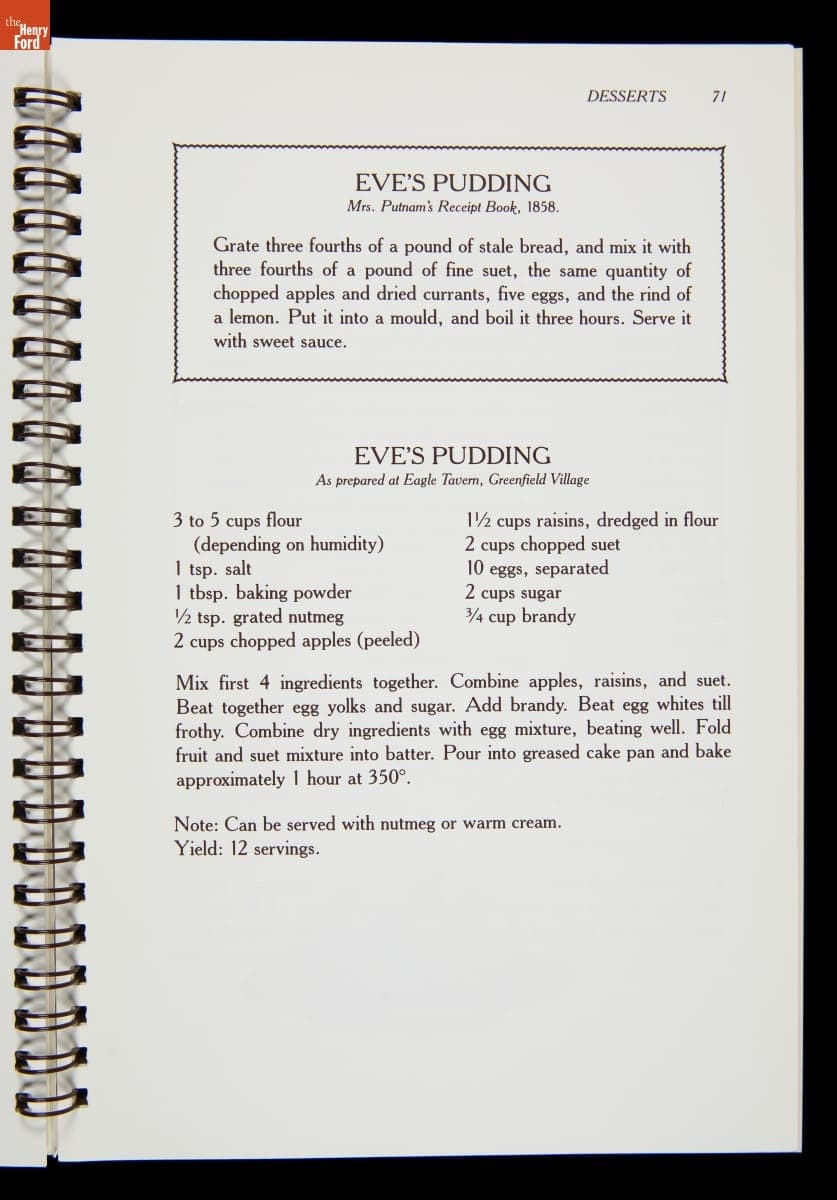 the
Henry
Ford
DESSERTS 71
EVE'S PUDDING
Mrs. Putnam's Receipt Book, 1858.
Grate three fourths of a pound of stale bread, and mix it with
three fourths of a pound of fine suet, the same quantity of
chopped apples and dried currants, five eggs, and the rind of
a lemon. Put it into a mould, and boil it three hours. Serve it
with sweet sauce.
EVE'S PUDDING
As prepared at Eagle Tavern, Greenfield Village
3 to 5 cups flour
(depending on humidity)
1 tsp. salt
1 tbsp. baking powder
½ tsp. grated nutmeg
2 cups chopped apples (peeled)
1½ cups raisins, dredged in flour
2 cups chopped suet
10 eggs, separated
2 cups sugar
¾ cup brandy
Mix first 4 ingredients together. Combine apples, raisins, and suet.
Beat together egg yolks and sugar. Add brandy. Beat egg whites till
frothy. Combine dry ingredients with egg mixture, beating well. Fold
fruit and suet mixture into batter. Pour into greased cake pan and bake
approximately 1 hour at 350°.
Note: Can be served with nutmeg or warm cream.
Yield: 12 servings.